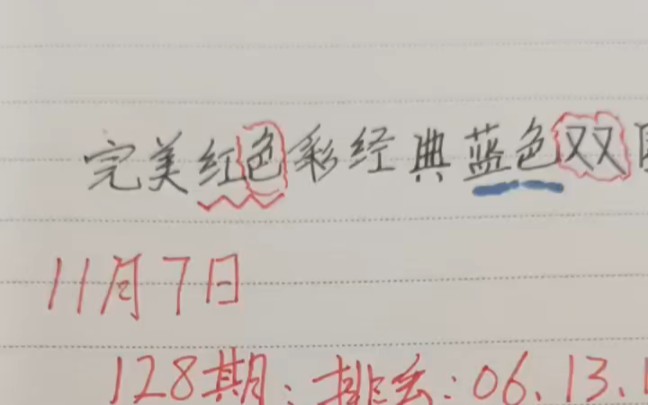 完美红色彩经典蓝色双
11月7日
128期：排去：06.13.